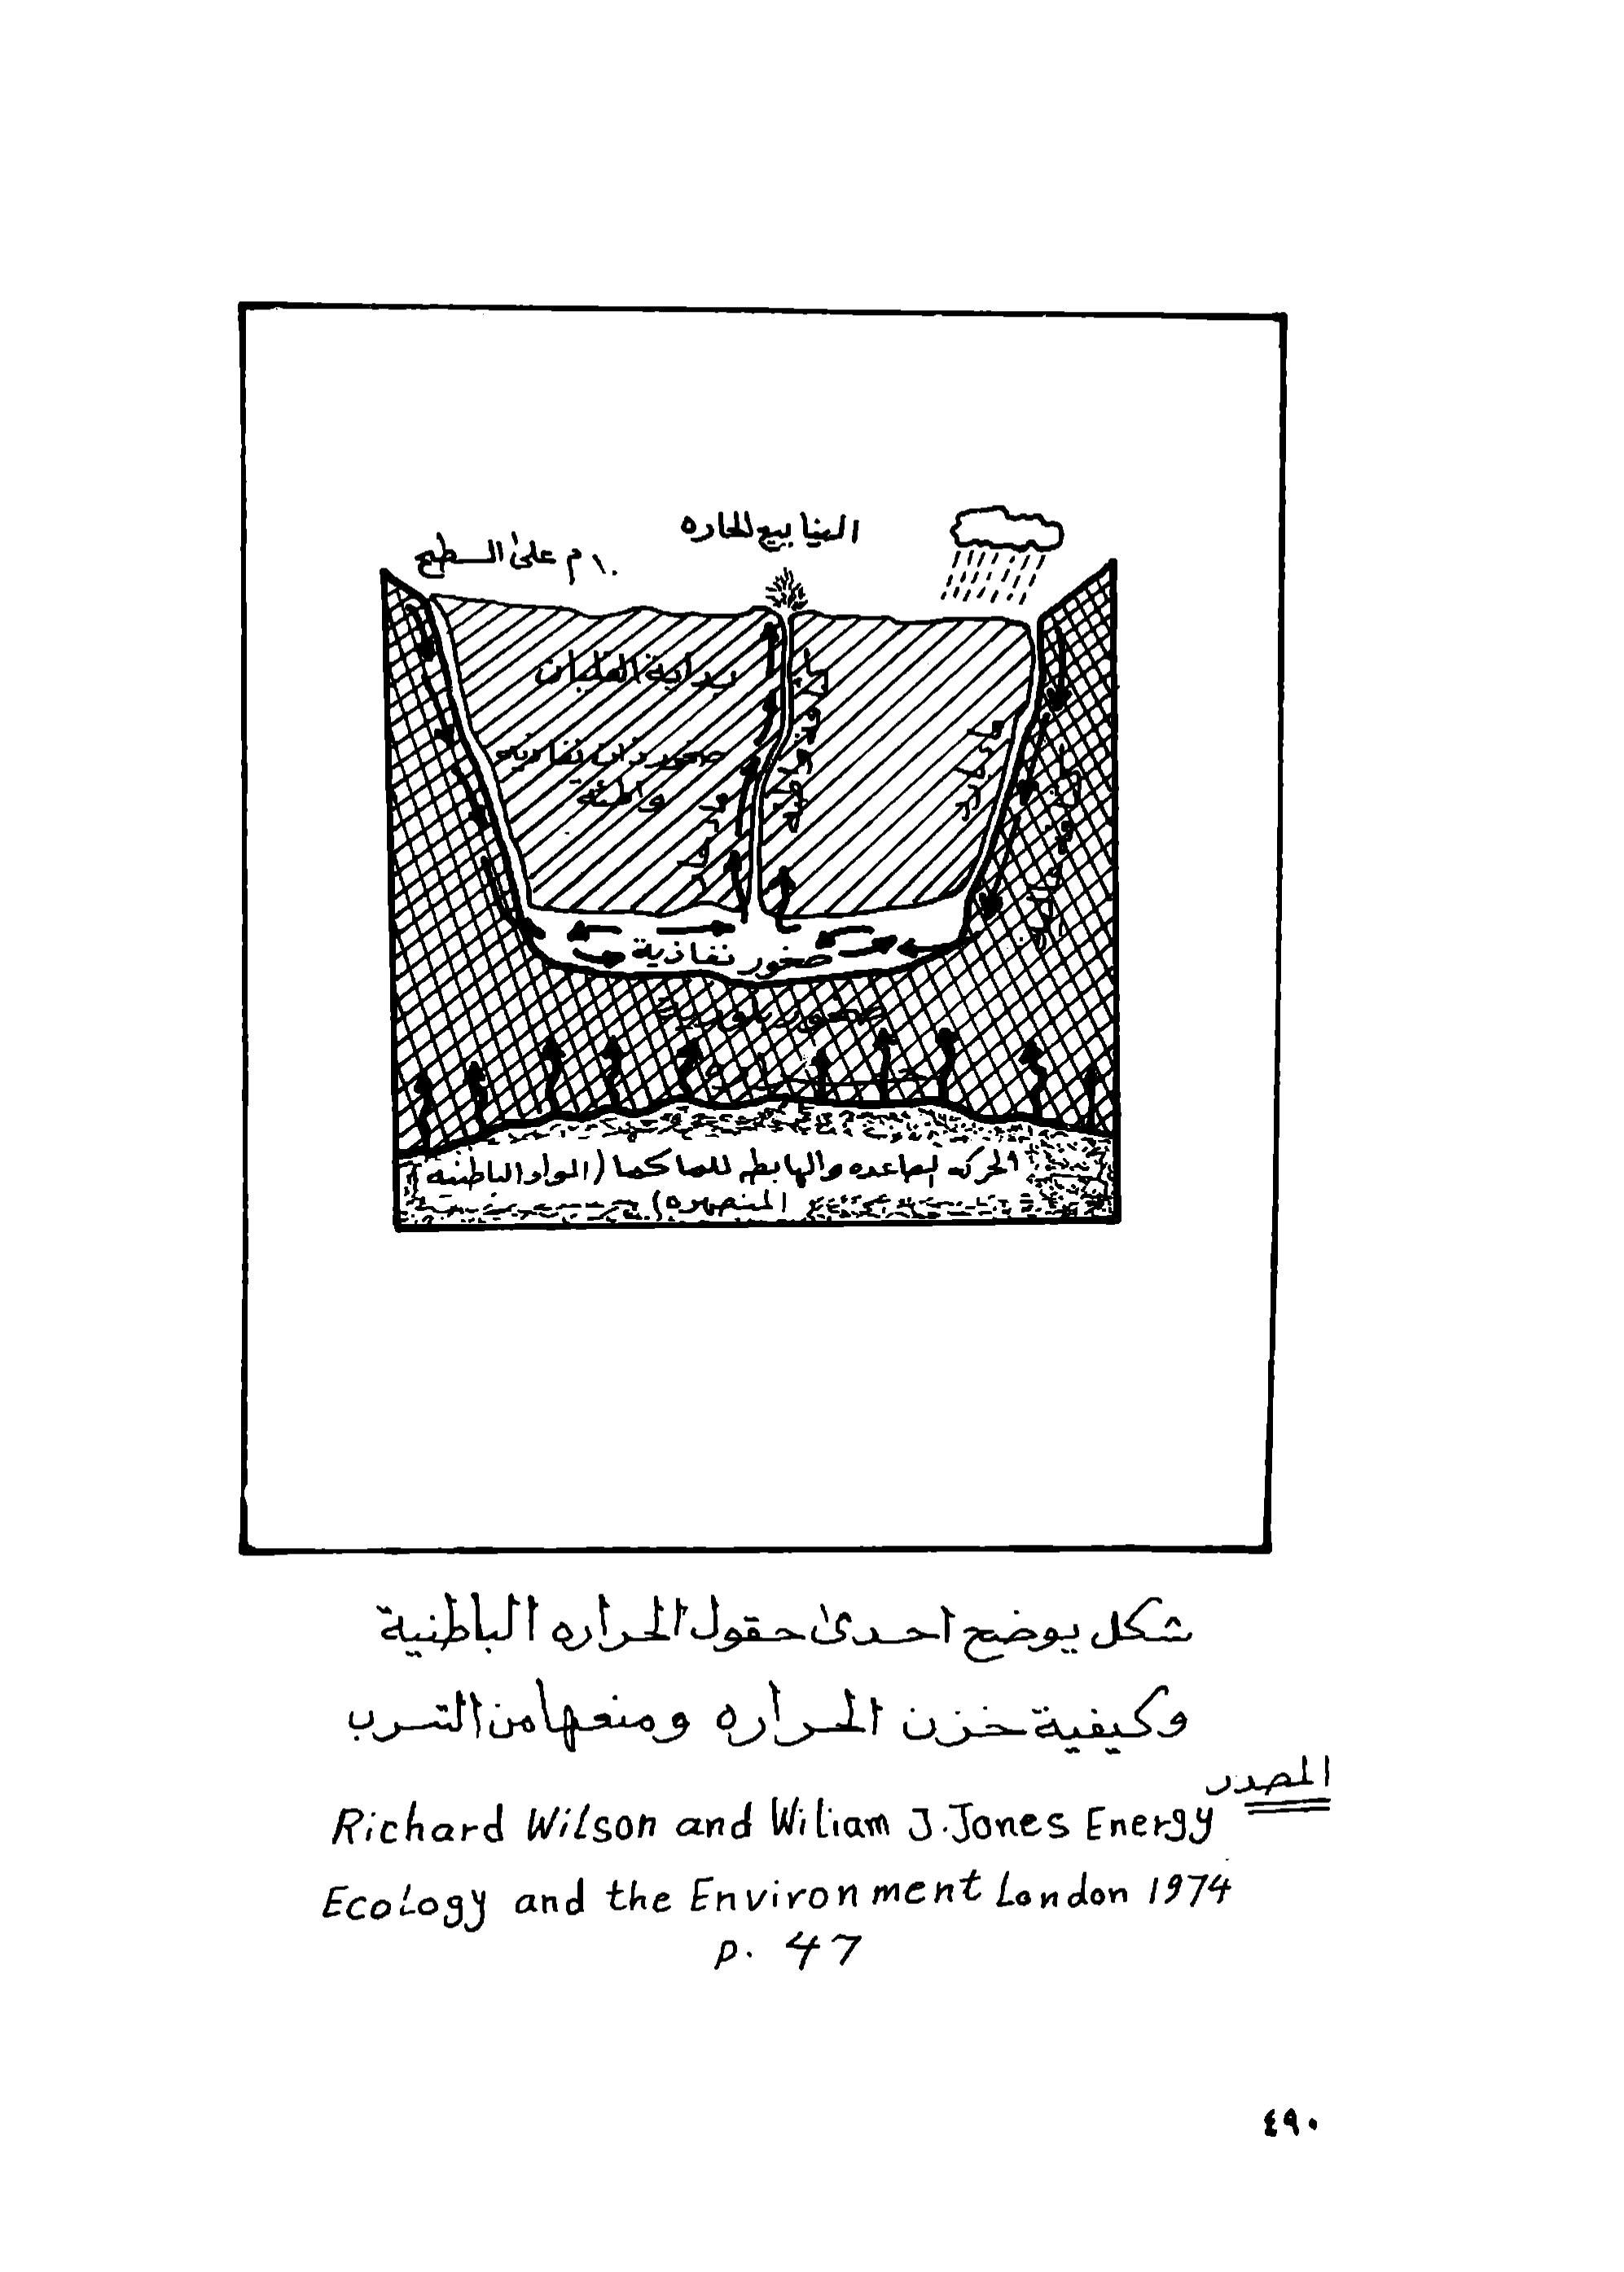 الينابيع الحاره
١٠م على السطح
بداية الغليان
صخور ذات نفاذيه
واطئه
صخور نفاذية
صخور بلوريه
الحركه الصاعده والهابطه للماكما (المواد الباطنيه
المنصهره)
شكل يوضح احدى حقول الحراره الباطنية
وكيفية خزن الحراره ومنعها من التسرب
المصدر
Richard Wilson and Wiliam J. Jones Energy
Ecology and the Environment London 1974
p. 47
٤٩٠